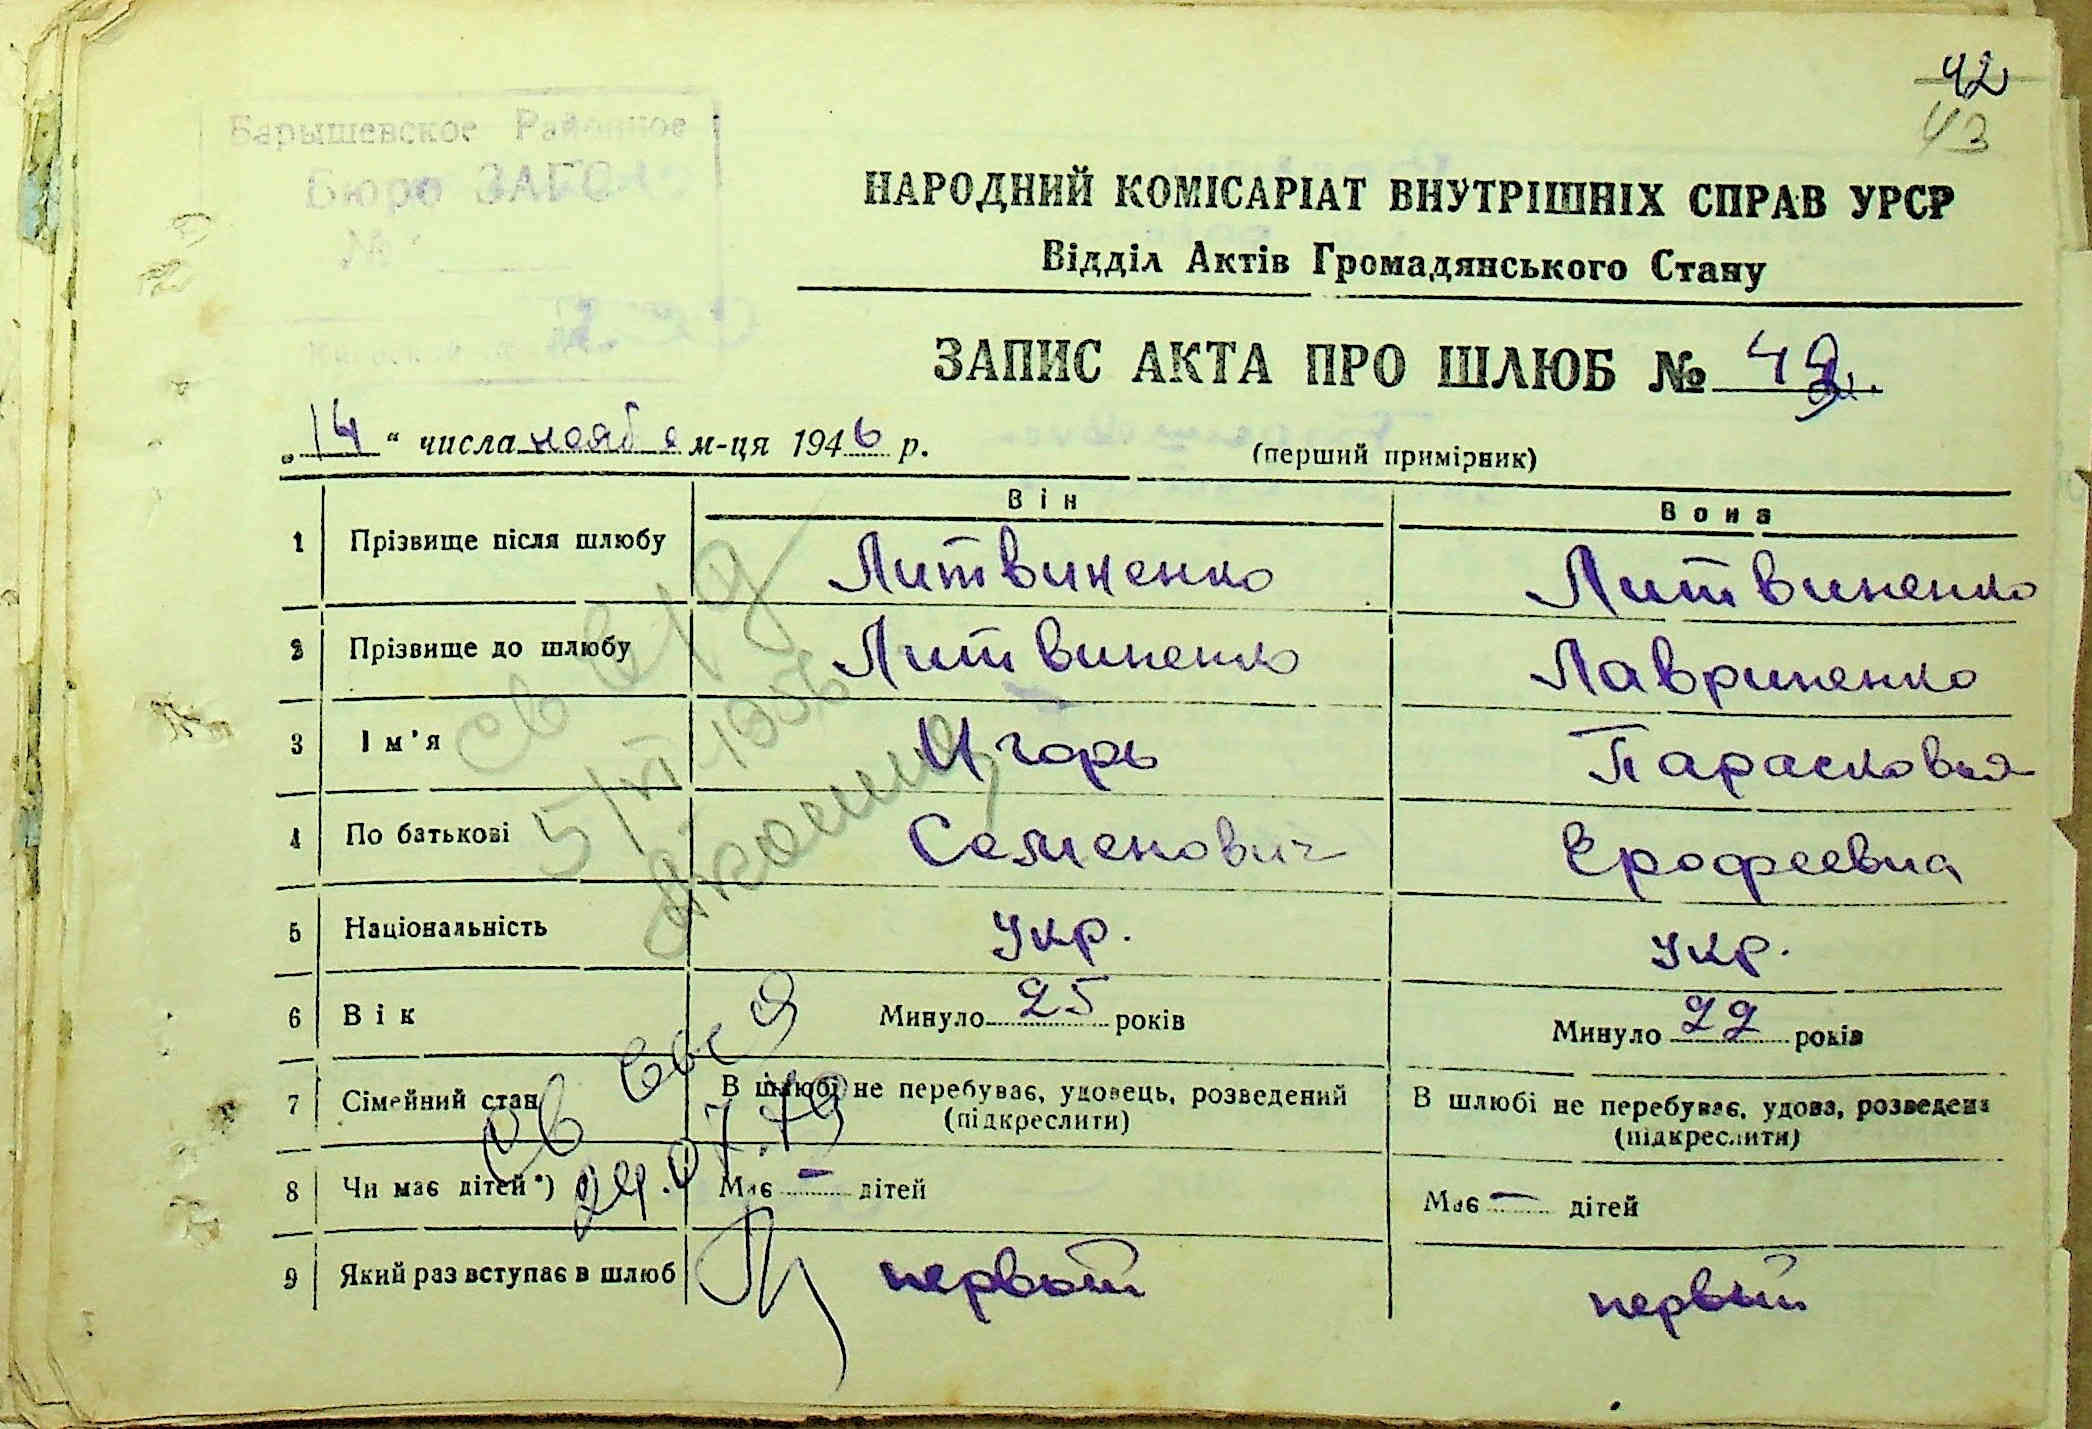 42
43
Барышевское Районное
Бюро ЗАГС
№
НАРОДНИЙ КОМІСАРІАТ ВНУТРІШНІХ СПРАВ УРСР
Відділ Актів Громадянського Стану
ЗАПИС АКТА ПРО ШЛЮБ № 49
„14“ числа ноября м-ця 1946 р. (перший примірник)
Він Вона
1 Прізвище після шлюбу Литвиненко Литвиненко
2 Прізвище до шлюбу Литвиненко Лавриненко
3 Ім'я Игорь Парасковья
4 По батькові Семенович Ерофеевна
5 Національність укр. укр.
6 Вік Минуло 25 років Минуло 22 років
7 Сімейний стан В шлюбі не перебуває, удовець, розведений (підкреслити) В шлюбі не перебуває, удова, розведена (підкреслити)
8 Чи має дітей*) Має — дітей Має — дітей
9 Який раз вступає в шлюб первый первый
5/VI-1956
24.07.79